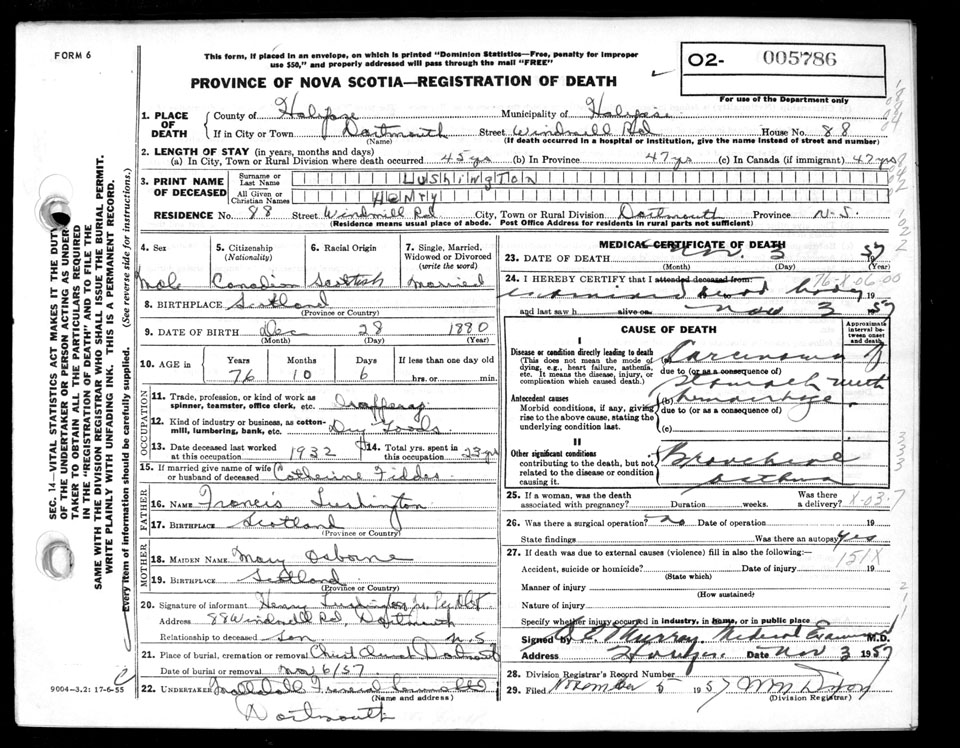 FORM 6
This form, if placed in an envelope, on which is printed "Dominion Statistics—Free, penalty for improper
use $50," and properly addressed will pass through the mail "FREE"
O2- 005786
PROVINCE OF NOVA SCOTIA—REGISTRATION OF DEATH
For use of the Department only
1. PLACE OF DEATH
County of Halifax Municipality of Halifax
If in City or Town Dartmouth Street Windmill Rd House No. 88
(Name) (If death occurred in a hospital or institution, give the name instead of street and number)
2. LENGTH OF STAY (in years, months and days)
(a) In City, Town or Rural Division where death occurred 45 yrs (b) In Province 47 yrs (c) In Canada (if immigrant) 47 yrs
3. PRINT NAME OF DECEASED
Surname or Last Name LUSHINGTON
All Given or Christian Names HENRY
RESIDENCE No. 88 Street Windmill Rd City, Town or Rural Division Dartmouth Province N-S.
(Residence means usual place of abode. Post Office Address for residents in rural parts not sufficient)
4. Sex
Male
5. Citizenship
(Nationality)
Canadian
6. Racial Origin
Scottish
7. Single, Married,
Widowed or Divorced
(write the word)
Married
8. BIRTHPLACE Scotland
(Province or Country)
9. DATE OF BIRTH Dec 28 1880
(Month) (Day) (Year)
10. AGE in
Years Months Days If less than one day old
76 10 6 hrs. or min.
OCCUPATION
11. Trade, profession, or kind of work as
spinner, teamster, office clerk, etc.
12. Kind of industry or business, as cotton-
mill, lumbering, bank, etc. Dry Goods
13. Date deceased last worked
at this occupation 1932
14. Total yrs. spent in
this occupation 23 yrs
15. If married give name of wife
or husband of deceased Catherine
FATHER
16. NAME Francis Lushington
17. BIRTHPLACE Scotland
(Province or Country)
MOTHER
18. MAIDEN NAME Mary Osborne
19. BIRTHPLACE Scotland
(Province or Country)
20. Signature of informant Henry Lushington Jr.
Address 88 Windmill Rd, Dartmouth
Relationship to deceased Son N.S
21. Place of burial, cremation or removal Christ Church Dartmouth
Date of burial or removal Nov 6/57
22. UNDERTAKER Funeral
(Name and address)
Dartmouth
9004—3.2: 17-6-55
SEC. 14—VITAL STATISTICS ACT MAKES IT THE DUTY
OF THE UNDERTAKER OR PERSON ACTING AS UNDER-
TAKER TO OBTAIN ALL THE PARTICULARS REQUIRED
IN THE "REGISTRATION OF DEATH" AND TO FILE THE
SAME WITH THE DIVISION REGISTRAR WHO SHALL ISSUE THE BURIAL PERMIT.
WRITE PLAINLY WITH UNFADING INK. THIS IS A PERMANENT RECORD.
Every item of information should be carefully supplied. (See reverse side for instructions.)
MEDICAL CERTIFICATE OF DEATH
23. DATE OF DEATH Nov. 3 1957
(Month) (Day) (Year)
24. I HEREBY CERTIFY that I attended deceased from: 76-X-06.00
examined dead body 19
and last saw h alive on Nov 3 1957
CAUSE OF DEATH
Approximate
interval be-
tween onset
and death
I
Disease or condition directly leading to death
(This does not mean the mode of
dying, e.g., heart failure, asthenia,
etc. It means the disease, injury, or
complication which caused death.)
(a) Carcinoma of
due to (or as a consequence of)
Stomach with
Antecedent causes
Morbid conditions, if any, giving
rise to the above cause, stating the
underlying condition last.
(b) hemorrhage
due to (or as a consequence of)
(c)
II
Other significant conditions
contributing to the death, but not
related to the disease or condition
causing it.
Bronchial
asthma
25. If a woman, was the death
associated with pregnancy? Duration weeks. Was there
a delivery? X-03.7
26. Was there a surgical operation? no Date of operation 19
State findings Was there an autopsy? Yes
27. If death was due to external causes (violence) fill in also the following:—
151X
Accident, suicide or homicide? Date of injury 19
(State which)
Manner of injury
(How sustained)
Nature of injury
Specify whether injury occurred in industry, in home, or in public place
Signed by Murray, Medical Examiner M.D.
Address Halifax. Date Nov 3 1957
28. Division Registrar's Record Number
29. Filed November 5 1957
(Division Registrar)